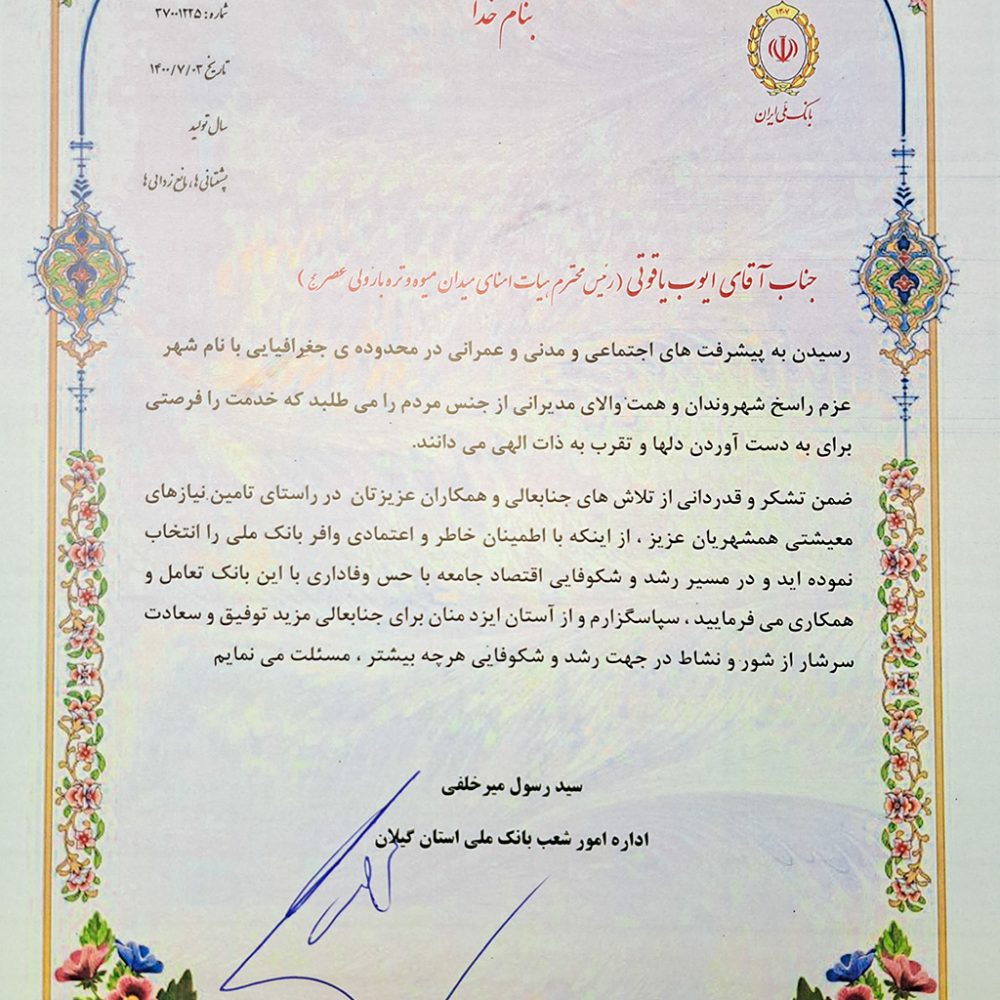 بنام خدا
شماره: ۳۷۰۰۱۲۲۵
تاریخ ۱۴۰۰/۷/۰۳
سال تولید
پشتیبانی ها، مانع زدایی ها
۱۳۰۷
بانک ملی ایران
جناب آقای ایوب یاقوتی (رئیس محترم هیات امنای میدان میوه و تره بار ولی عصر عج)
رسیدن به پیشرفت های اجتماعی و مدنی و عمرانی در محدوده ی جغرافیایی با نام شهر
عزم راسخ شهروندان و همت والای مدیرانی از جنس مردم را می طلبد که خدمت را فرصتی
برای به دست آوردن دلها و تقرب به ذات الهی می دانند.
ضمن تشکر و قدردانی از تلاش های جنابعالی و همکاران عزیزتان در راستای تامین نیازهای
معیشتی همشهریان عزیز ، از اینکه با اطمینان خاطر و اعتمادی وافر بانک ملی را انتخاب
نموده اید و در مسیر رشد و شکوفایی اقتصاد جامعه با حس وفاداری با این بانک تعامل و
همکاری می فرمایید ، سپاسگزارم و از آستان ایزد منان برای جنابعالی مزید توفیق و سعادت
سرشار از شور و نشاط در جهت رشد و شکوفایی هرچه بیشتر ، مسئلت می نمایم
سید رسول میرخلفی
اداره امور شعب بانک ملی استان گیلان